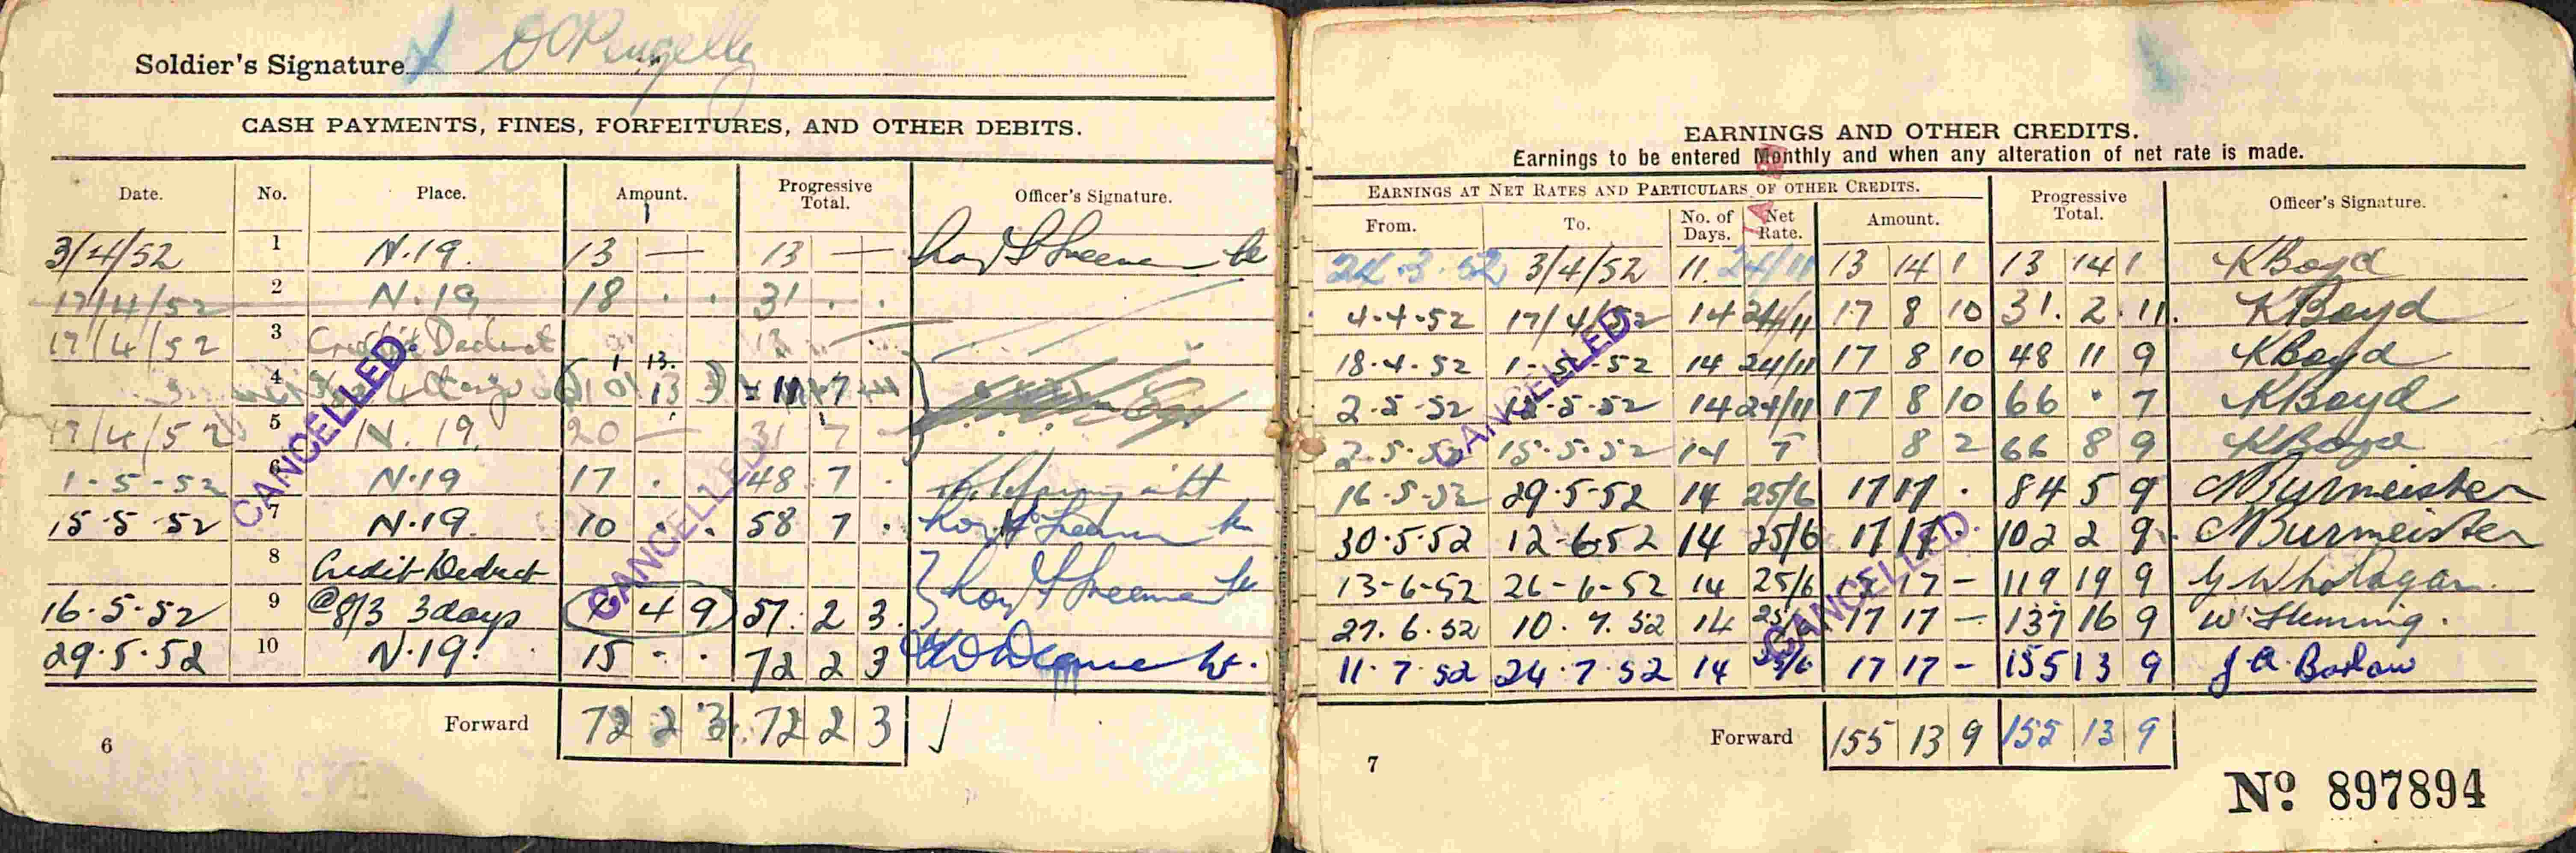 Soldier's Signature
CASH PAYMENTS, FINES, FORFEITURES, AND OTHER DEBITS.
Date. No. Place. Amount. Progressive Total. Officer's Signature.
3/4/52 1 N.19. 13 — 13 —
17/4/52 2 N.19. 18 . . 31 . .
17/4/52 3 Credit Deduct 13
4 1 13.
17/4/52 5 N.19. 20 — 31 7
1-5-52 6 N.19 17 . 48 7 .
15-5-52 7 N.19. 10 . . 58 7 .
8 Credit Deduct
16.5.52 9 @8/3 3days 4 9 57. 2 3.
29.5.52 10 N.19. 15 - . 72 2 3
Forward 72 2 3 72 2 3
6
CANCELLED
CANCELLED
EARNINGS AND OTHER CREDITS.
Earnings to be entered Monthly and when any alteration of net rate is made.
EARNINGS AT NET RATES AND PARTICULARS OF OTHER CREDITS. Progressive Total. Officer's Signature.
From. To. No. of Days. Net Rate. Amount.
24.3.52 3/4/52 11. 24/11 13 14 1 13 14 1 KBoyd
4-4-52 17/4/52 14 24/11 17 8 10 31. 2. 11. KBoyd
18-4-52 1-5-52 14 24/11 17 8 10 48 11 9 KBoyd
2-5-52 15-5-52 14 24/11 17 8 10 66 . 7 KBoyd
2.5.52 15.5.52 14 7 8 2 66 8 9 KBoyd
16-5-52 29.5-52 14 25/6 17 17 . 84 5 9 Burmeister
30.5.52 12-6-52 14 25/6 17 17 . 102 2 9. Burmeister
13-6-52 26-6-52 14 25/6 17 17 — 119 19 9
27.6.52 10.7.52 14 25/6 17 17 — 137 16 9 W. Fleming.
11.7.52 24.7.52 14 25/6 17 17 — 155 13 9
Forward 155 13 9 155 13 9
CANCELLED
CANCELLED
7
No. 897894